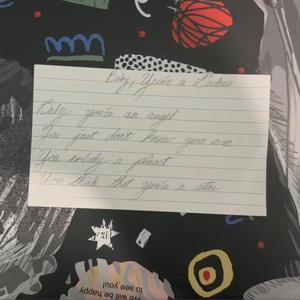 Baby, You're a
Baby you're an angel
You just don't know you are
You embody a planet
You think that you're a star
we will be happy
to see you!